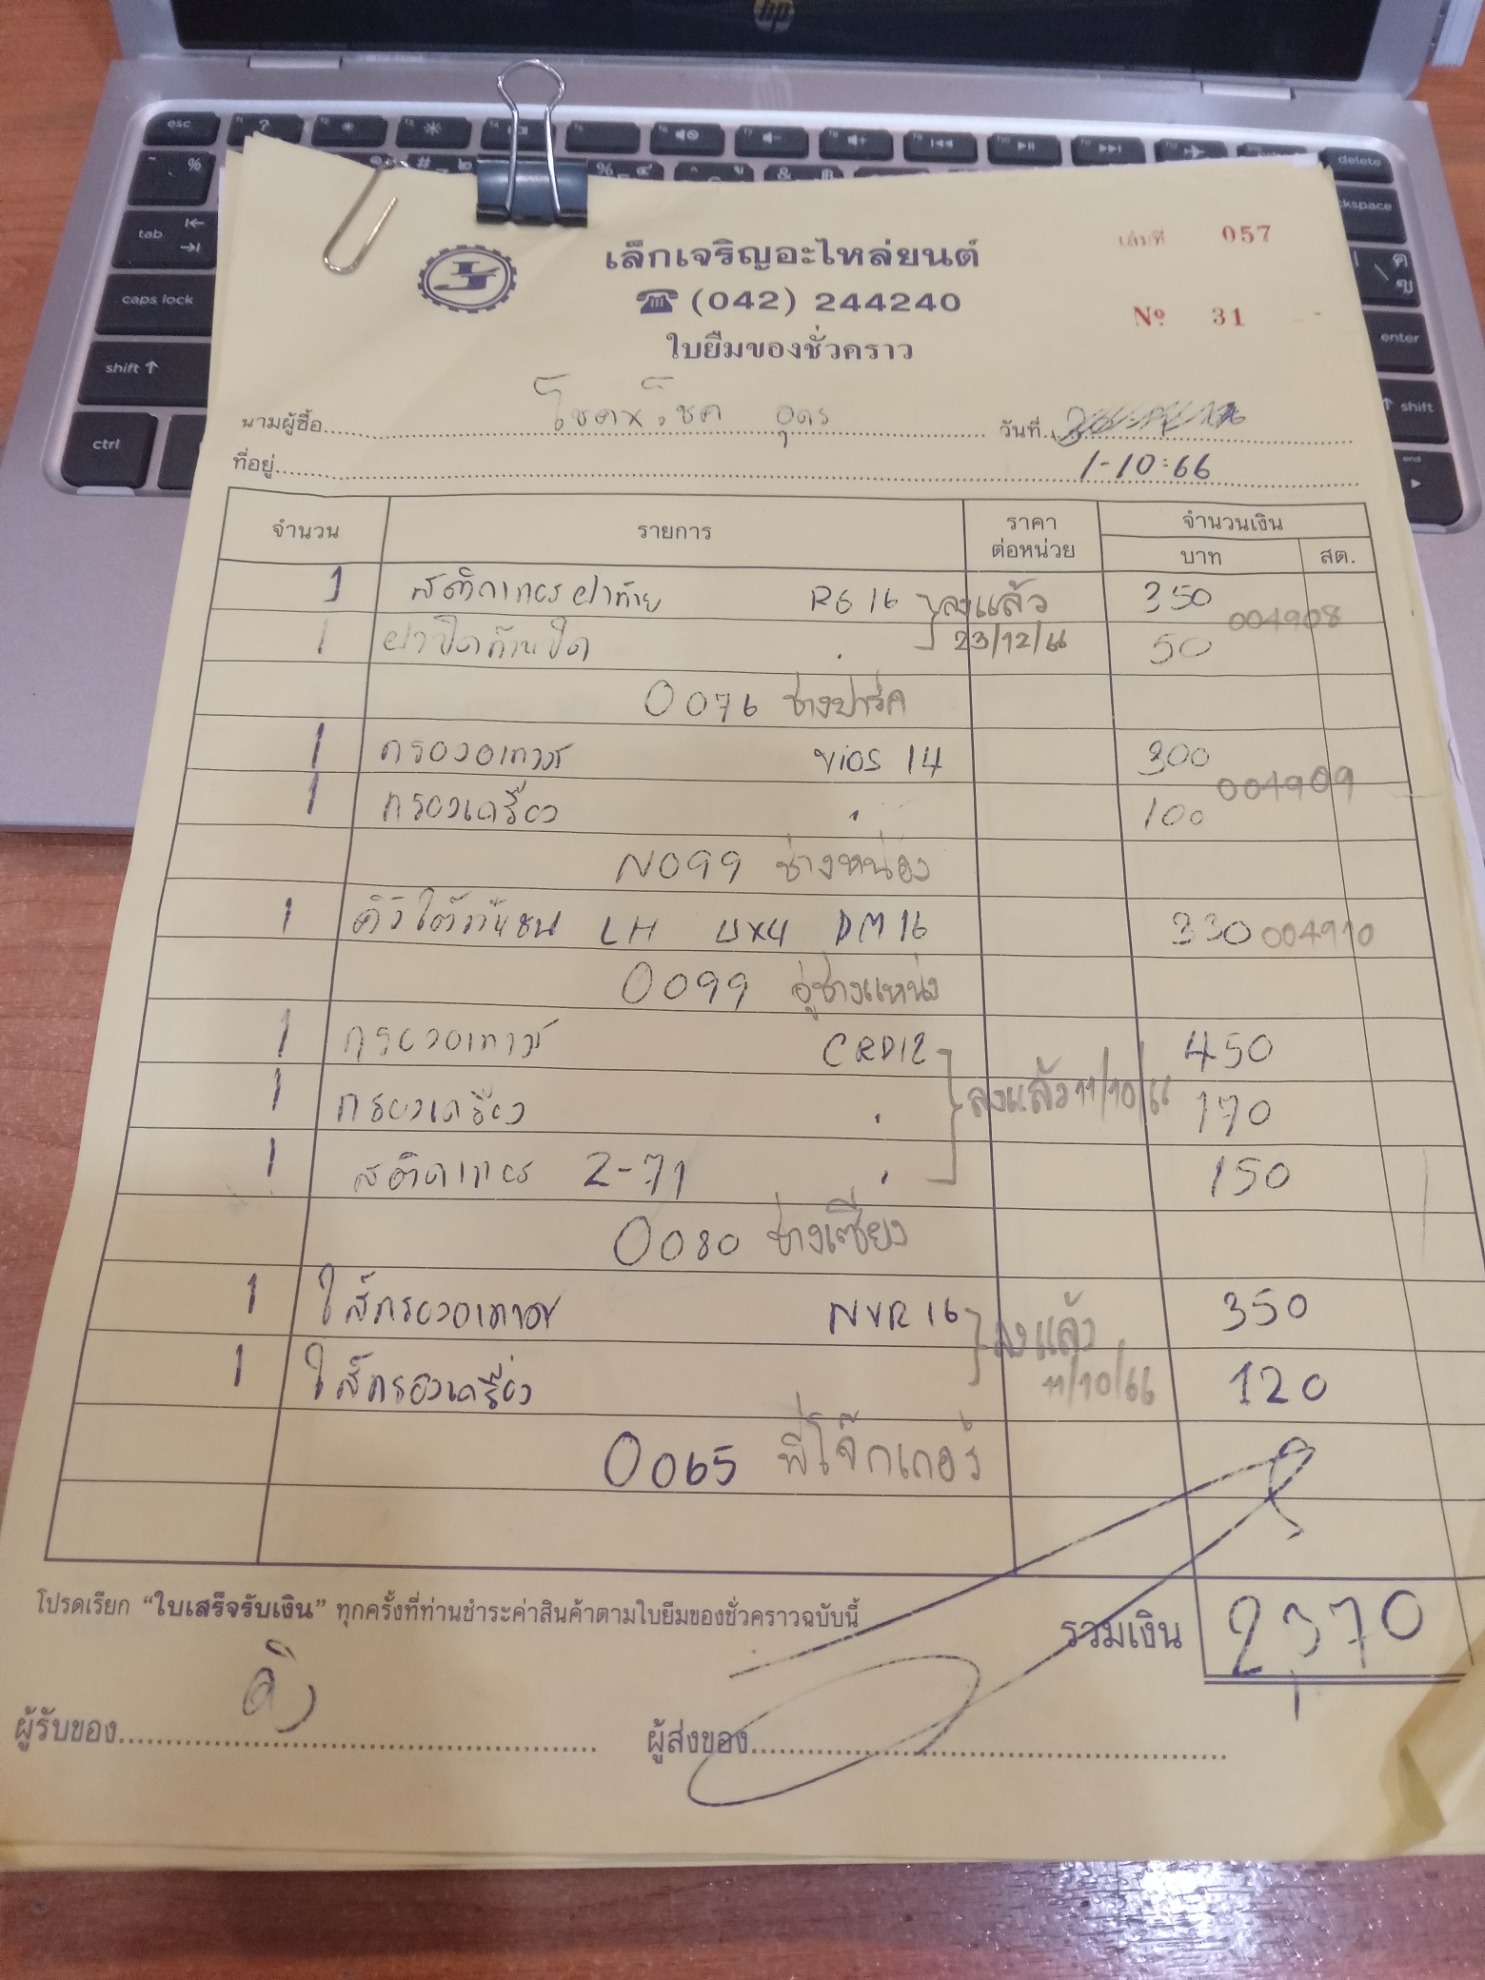 เล็กเจริญอะไหล่ยนต์
☎ (042) 244240
ใบยืมของชั่วคราว
เล่มที่ 057
Nº 31
นามผู้ซื้อ โชคxโชค อุดร วันที่
ที่อยู่ 1-10-66
จำนวน รายการ ราคาต่อหน่วย จำนวนเงิน
บาท สต.
1 สติกเกอร์ฝาท้าย RG16 ลงแล้ว 350 004908
1 ฝาปิด 23/12/66 50
0076 ช่างปาร์ค
1 กรองอากาศ vios 14 300
1 กรองเครื่อง 100 004909
N099 ช่างหน่อง
1 คิ้วใต้ LH 4x4 DM16 330 004910
0099 อู่ช่างแหน่ง
1 กรองอากาศ CRD12 450
1 กรองเครื่อง ลงแล้ว 11/10/66 170
1 สติกเกอร์ 2-71 150
0080 ช่างเซียง
1 ไส้กรองอากาศ NVR16 ลงแล้ว 350
1 ไส้กรองเครื่อง 11/10/66 120
0065 พี่โจ๊กเกอร์
โปรดเรียก “ใบเสร็จรับเงิน” ทุกครั้งที่ท่านชำระค่าสินค้าตามใบยืมของชั่วคราวฉบับนี้
รวมเงิน 2,370
ผู้รับของ ผู้ส่งของ